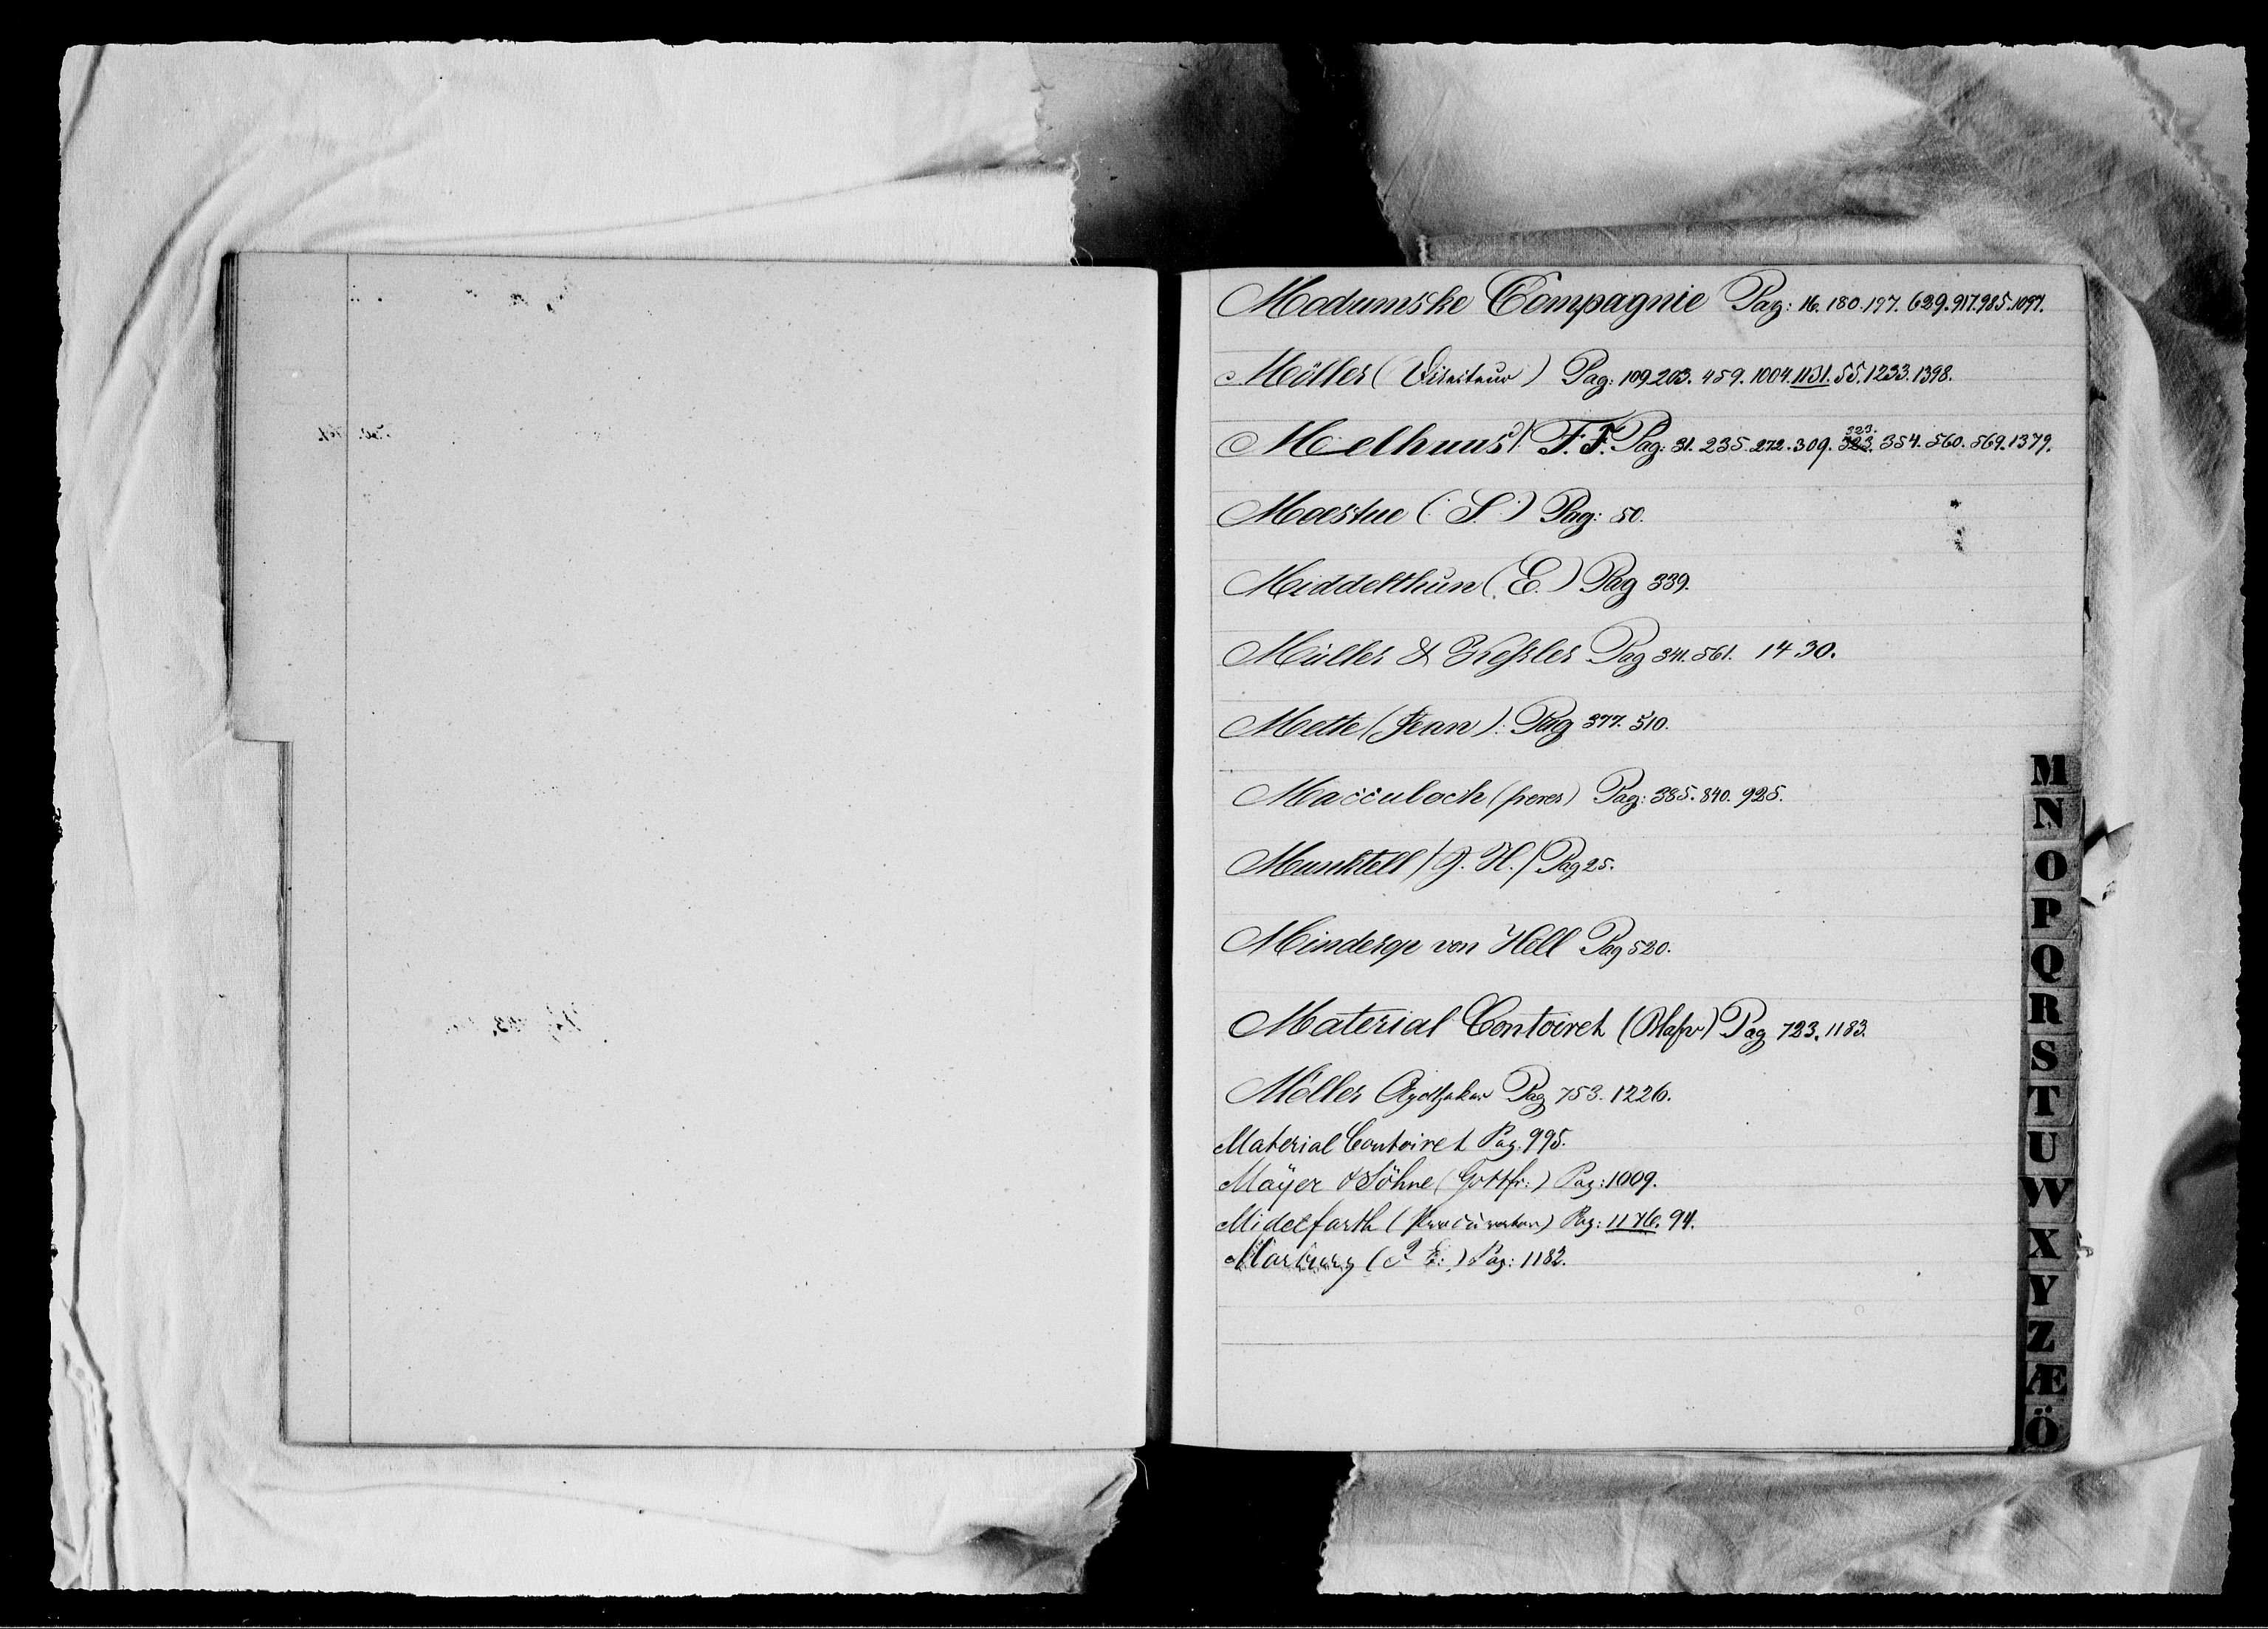 Modumske Compagnie Pag: 16. 180. 197. 629. 917. 985. 1097.
Möller ( Directeur ) Pag: 109. 203. 459. 1004. 1131. 55. 1233. 1398.
Melhuus F. F. Pag: 31. 235. 272. 309. 323. 323. 354. 560. 569. 1379.
Moestue (: S. :) Pag: 50.
Middelthun (. E. ) Pag 339.
Müller & Keſsler Pag 341. 561. 1430.
Mette ( Jean ): Pag 377. 510.
Macculoch (freres) Pag: 385. 840. 925.
Munktell / J. H. / Pag 25.
Minderop von Hell Pag 520.
Material Contoiret Pag 723. 1183.
Möller Apotheker Pag 753. 1226.
Material Contoiret Pag. 995.
Mäyer & Söhne ( Gottfr: ) Pag: 1009.
Midelfarth ( Procurator ) Pag: 1176. 94.
Marburg ( E: ) Pag: 1182.
M
N
O
P
Q
R
S
T
U
W
X
Y
Z
Æ
Ö